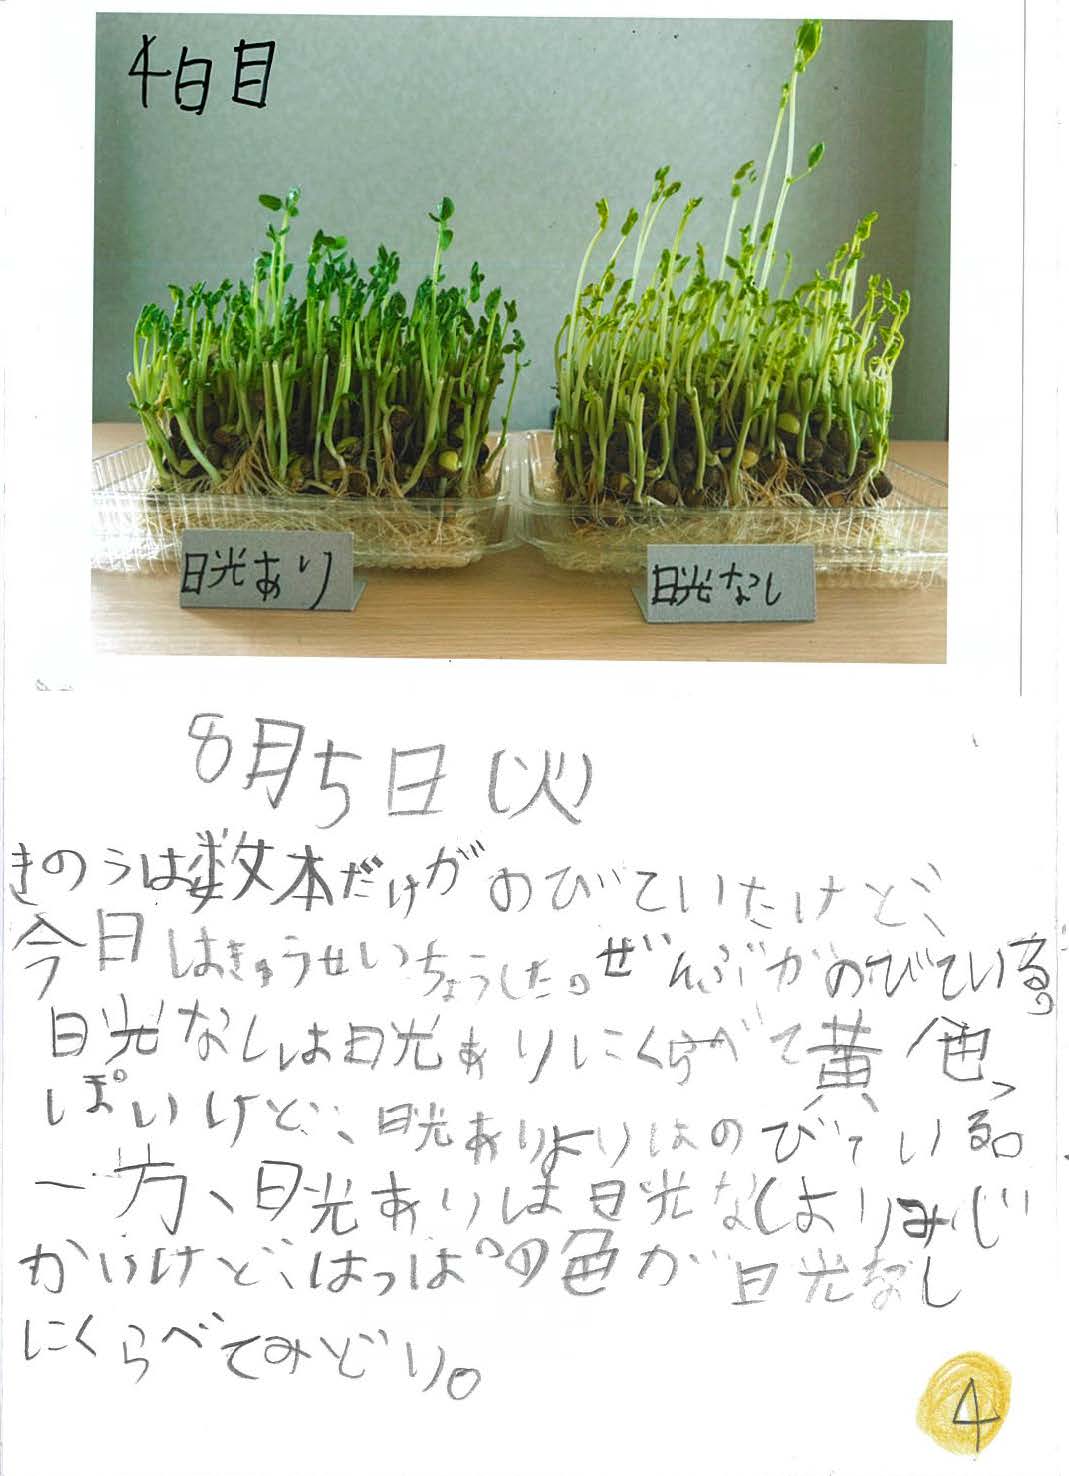 4日目
日光あり
日光なし
8月5日(火)
きのうは数本だけがのびていたけど、
今日はきゅうせいちょうした。ぜんぶがのびている。
日光なしは日光ありにくらべて黄色っ
ぽいけど、日光ありよりはのびている。
一方、日光ありは日光なしよりみじ
かいけど、はっぱの色が日光なし
にくらべてみどり。
4